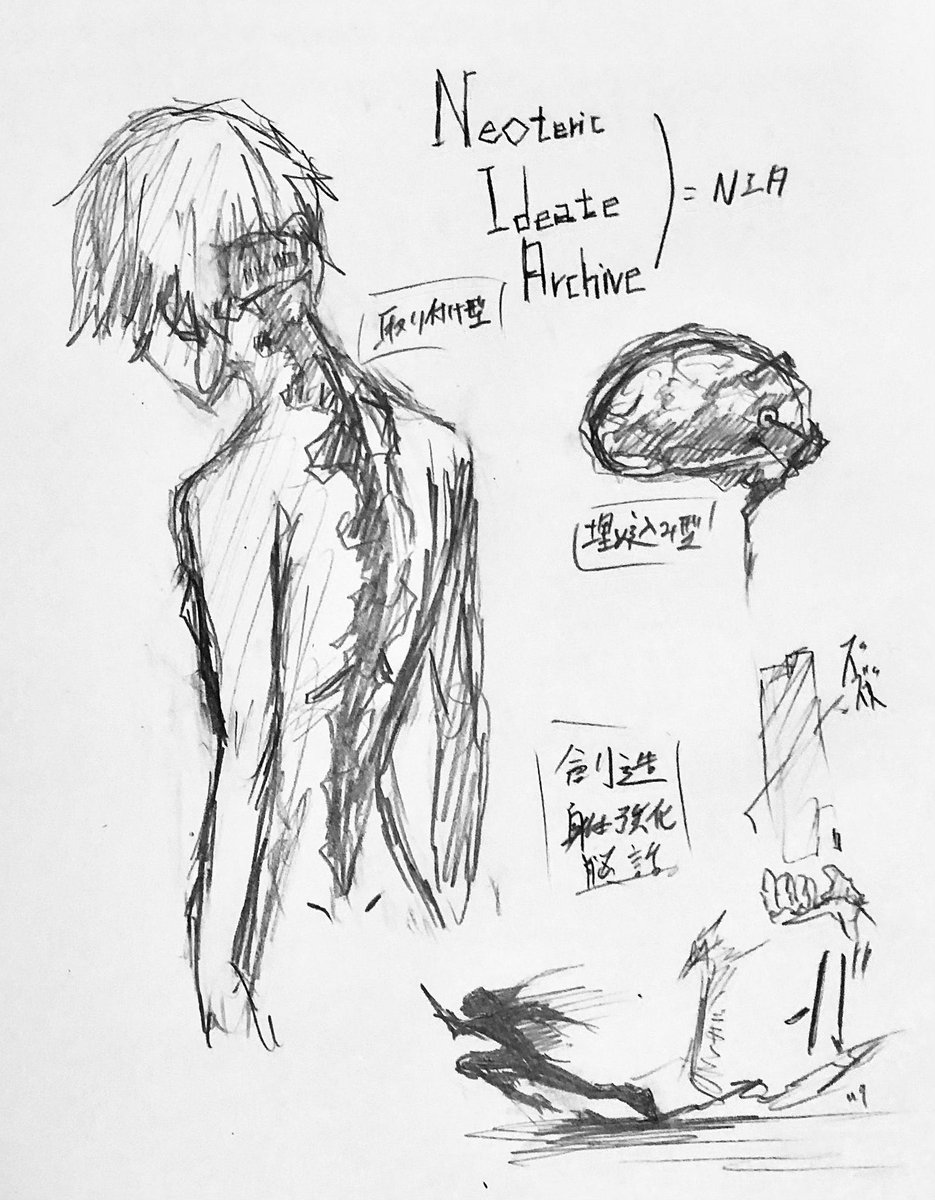 Neoteric
Ideate
Archive
= NIA
取り付け型
埋め込み型
ズズズ
創造
身体強化
脳話